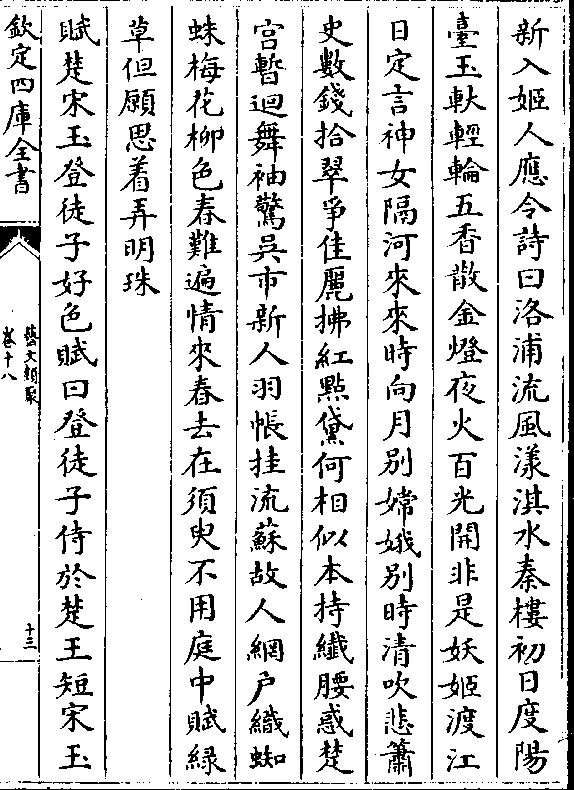 新入姬人應令詩曰洛浦流風漾淇水秦樓初日度陽
臺玉軑輕輪五香散金燈夜火百光開非是妖姬渡江
日定言神女隔河來來時向月別嫦娥別時清吹悲簫
史數錢拾翠爭佳麗拂紅點黛何相似本持纖腰惑楚
宫暫迴舞袖驚吳市新人羽帳挂流蘇故人網户織蜘
蛛梅花柳色春難遍情來春去在須臾不用庭中賦緑
草但願思着弄明珠
賦楚宋玉登徒子好色賦曰登徒子侍於楚王短宋玉
欽定四庫全書
藝文類聚
卷十八
十三